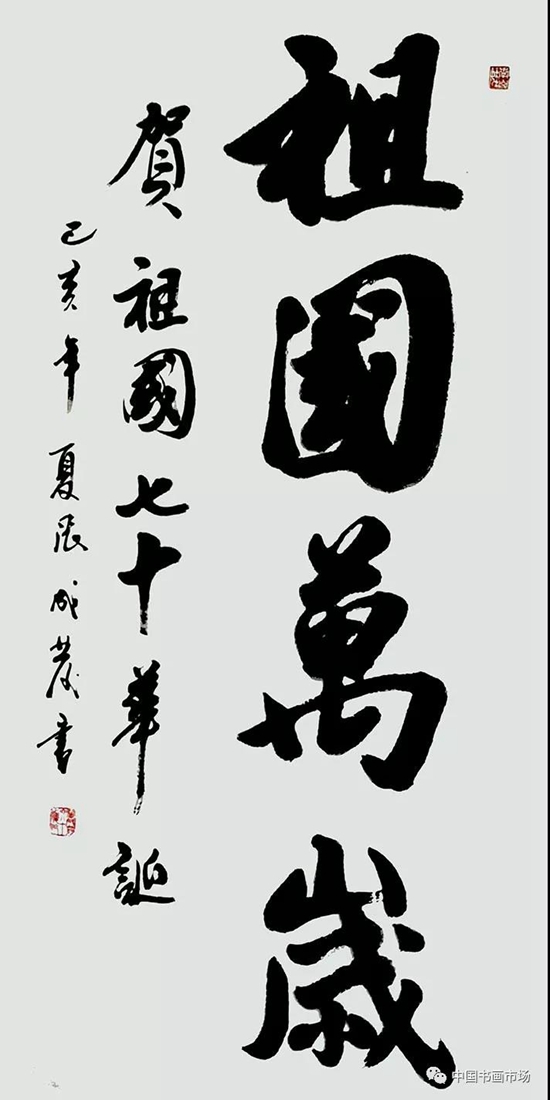 祖國萬歲
賀祖國七十華誕
己亥年夏張成茂書
中国书画市场